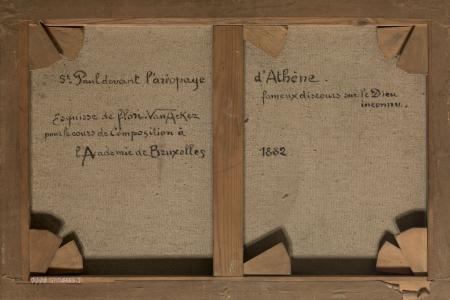 St Paul devant l'aréopage d'Athène.
fameux discours sur le Dieu
inconnu.
Esquisse de flori. Van Acker
pour le cours de Composition à
l'Academie de Bruxelles 1882